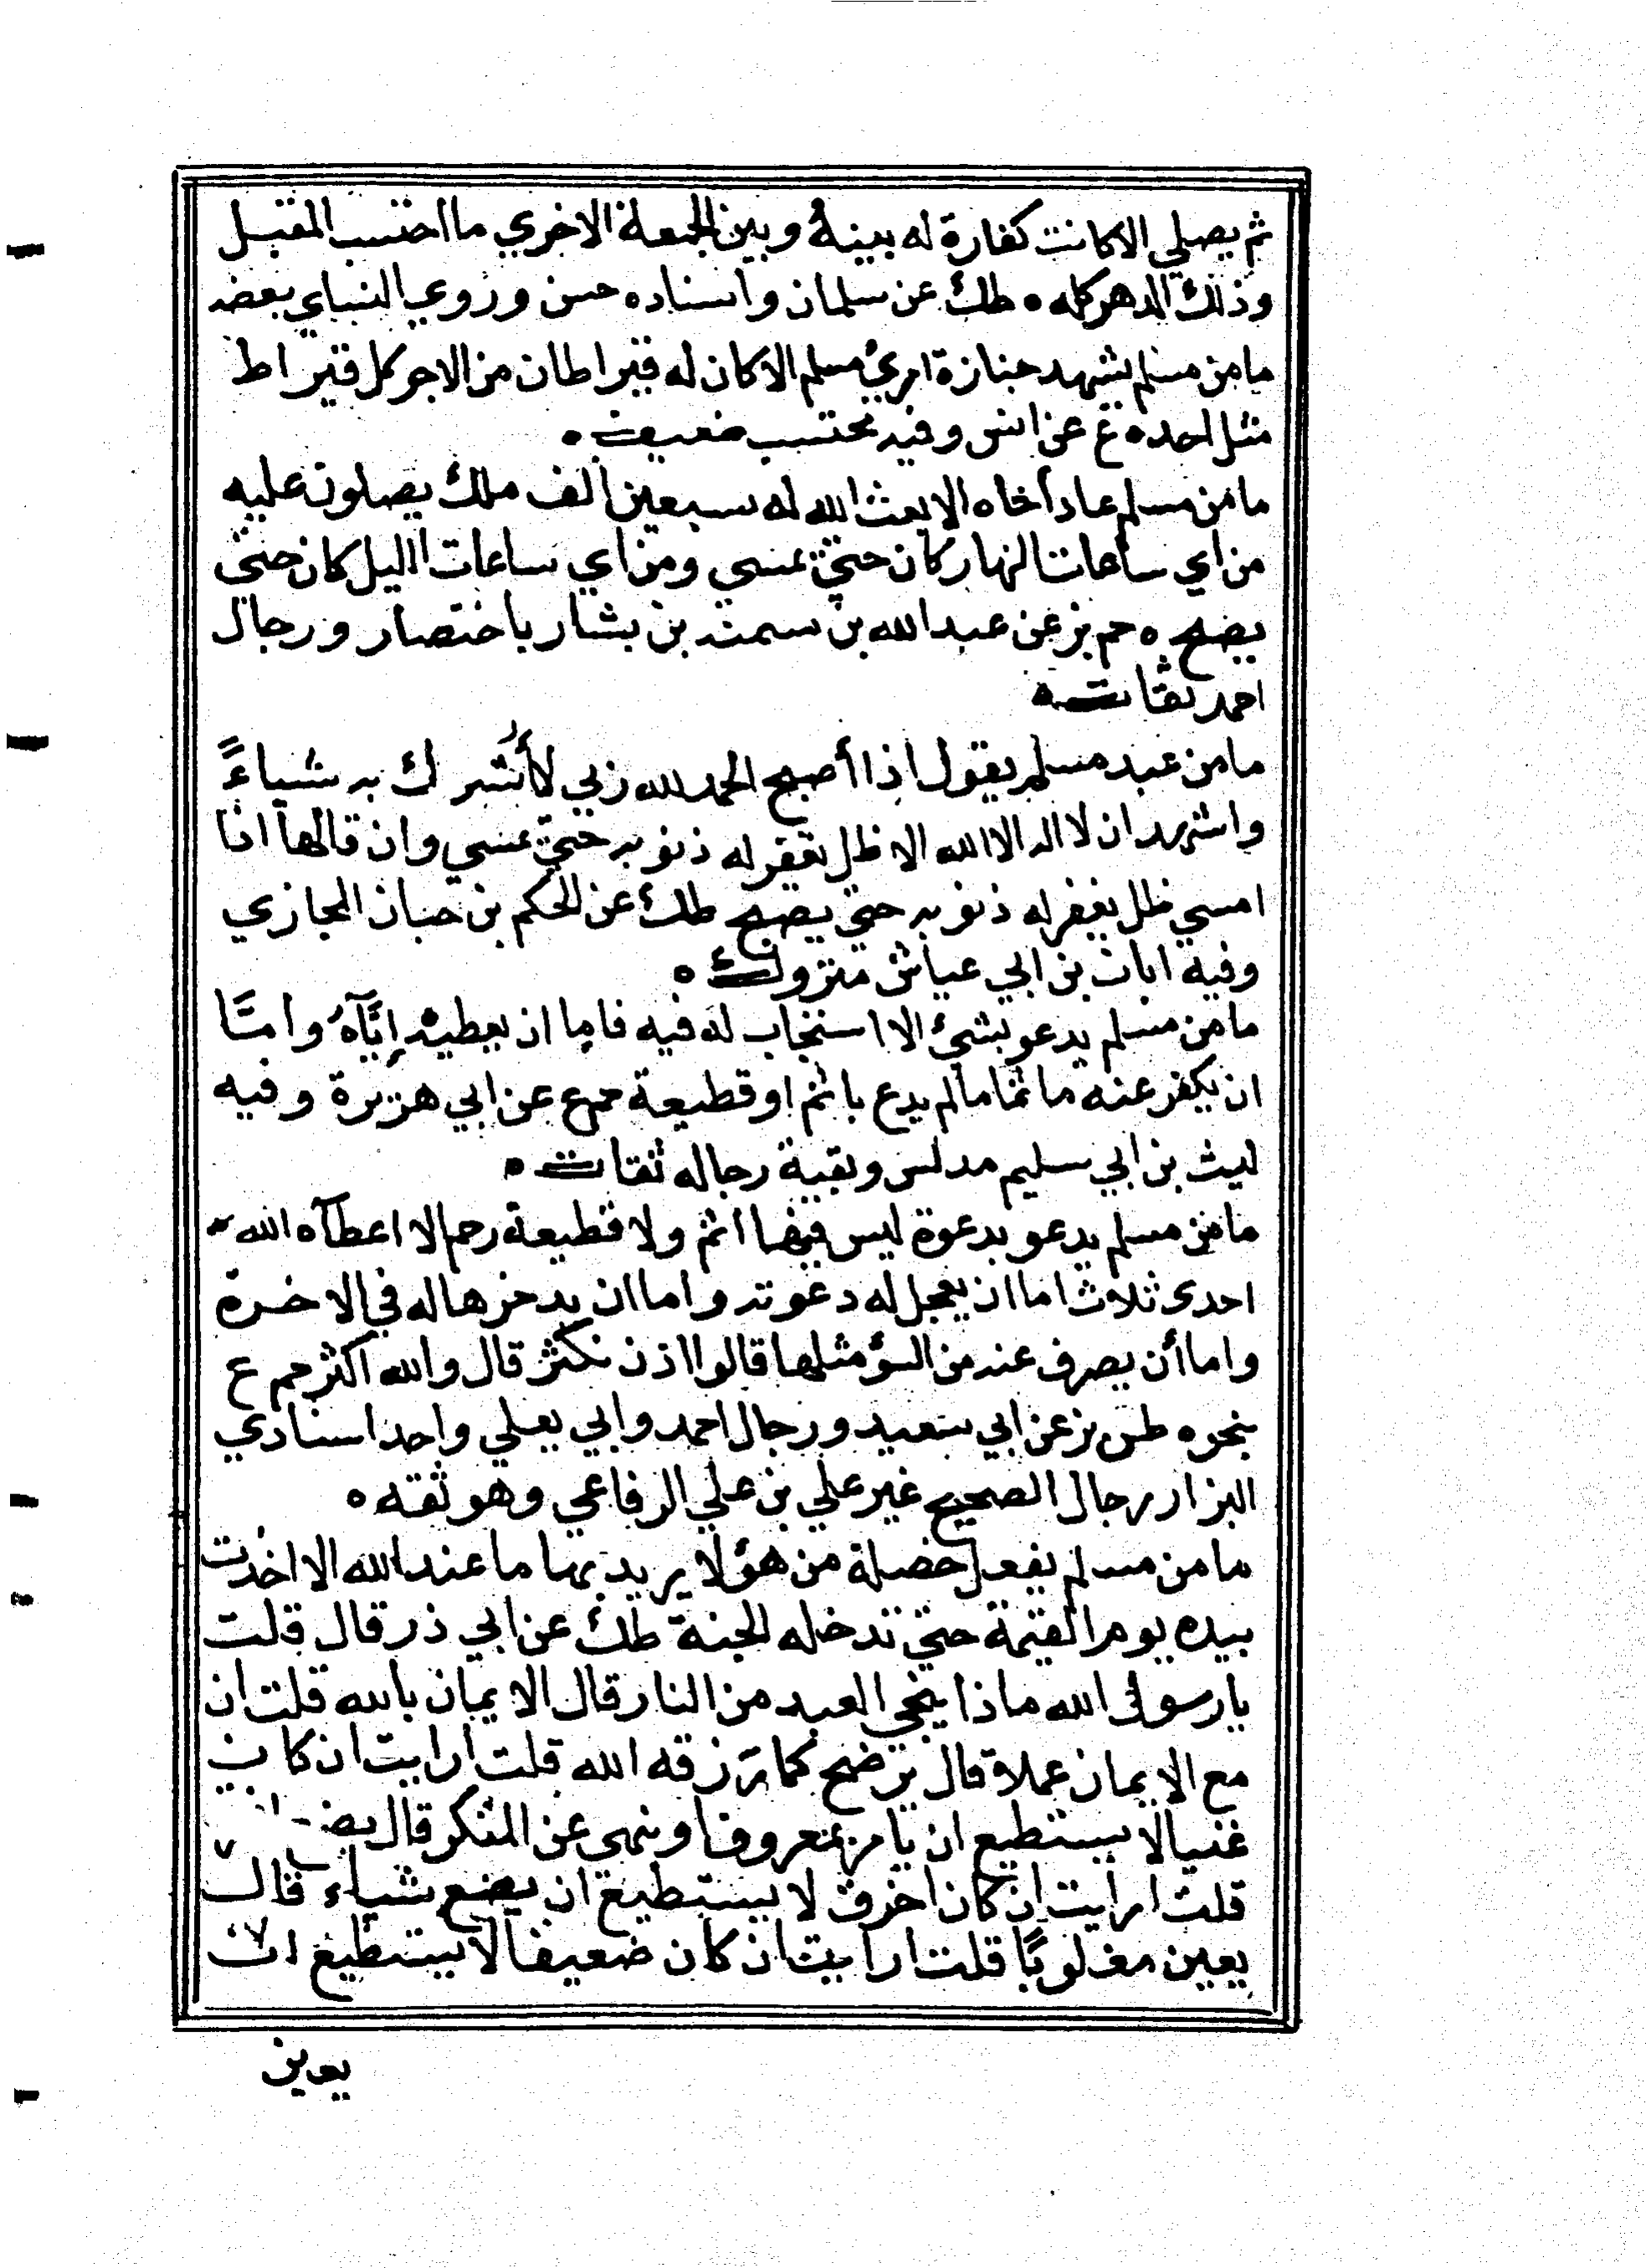 ثم يصلي الا كانت كفارة له بينهُ وبين الجمعة الاخري ما اجتنب المقبل
وذلك الدهر كله ه طك عن سلمان واسناده حسن وروي النساي بعضه
ما من مسلم يشهد جنازة امرئ مسلم الا كان له قيراطان من الاجر كل قيراط
مثل احده ع عن انس وفيه محتسب ضعيف ه
ما من مسلم عاد أخاه الا بعث الله له سبعين الف ملك يصلون عليه
من اي ساعات النهار كان حتي تمسي ومن اي ساعات الليل كان حتي
يصبح ه حم بز عن عبد الله بن بشار باختصار ورجال
احمد ثقات ه
ما من عبد مسلم يقول اذا أصبح الحمد لله ربي لا أُشرك به شياءً
واشهد ان لا اله الا الله الا ظل تغفر له ذنوبه حتي تمسي وان قالها اذا
امسي ظل يغفر له ذنوبه حتي يصبح طك عن الحكم بن حبان المجازي
وفيه ابان بن ابي عياش متروك ه
ما من مسلم يدعو بشئ الا استجاب له فيه فاما ان يعطيه إيَّاهُ وامَّا
ان يكفر عنه ماثما ما لم يدع باثم او قطيعة حم ع عن ابي هريرة وفيه
ليث بن ابي سليم مدلس وبقية رجاله ثقات ه
ما من مسلم يدعو بدعوة ليس فيها اثم ولا قطيعة رحم الا اعطاه الله
احدى ثلاث اما ان يعجل له دعوته واما ان يدخرها له في الاخرة
واما أن يصرف عنه من السؤ مثلها قالوا اذن نكثر قال والله اكثر حم ع
بنحوه طس بز عن ابي سعيد ورجال احمد وابي يعلي واحد اسنادي
البزار رجال الصحيح غير علي بن علي الرفاعي وهو ثقه ه
ما من مسلم يفعل خصلة من هؤلا يريد بها ما عند الله الا اخذت
بيده يوم القيمة حتي تدخله الجنة طك عن ابي ذر قال قلت
يا رسول الله ماذا ينجي العبد من النار قال الايمان بالله قلت ان
مع الايمان عملا قال يرضخ كما رزقه الله قلت ارايت ان كان
غنيا لا يستطيع ان يامر بمعروفا وينهى عن المنكر قال
قلت ارايت ان كان اخرق لا يستطيع ان يصنع شياء قال
يعين مغلوبًا قلت ارايت ان كان ضعيفا لا يستطيع ان
يعين